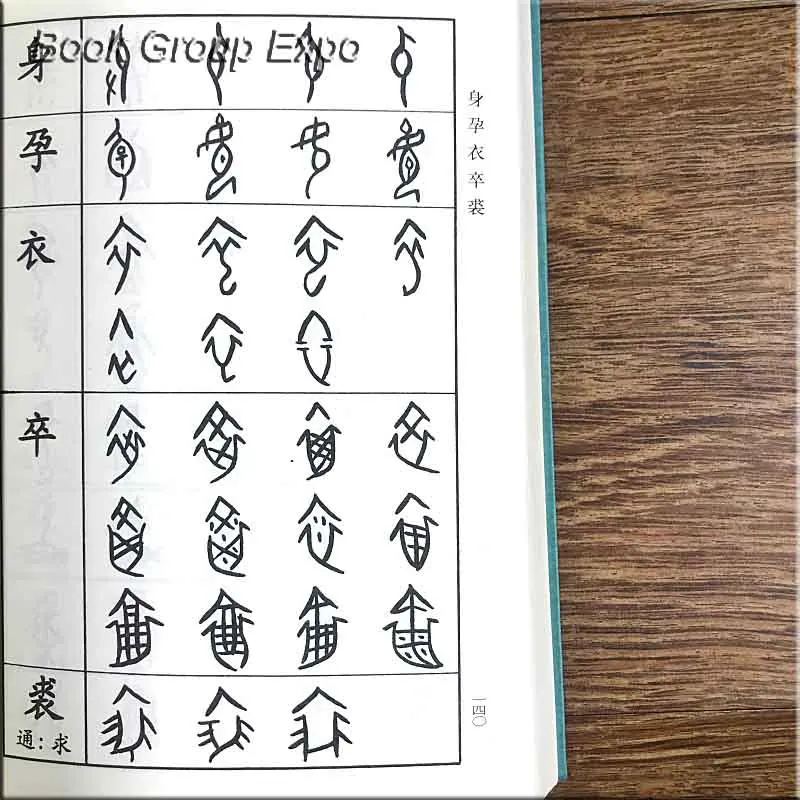 Book Group Expo
身
孕
衣
卒
裘
通：求
身孕衣卒裘
一四〇